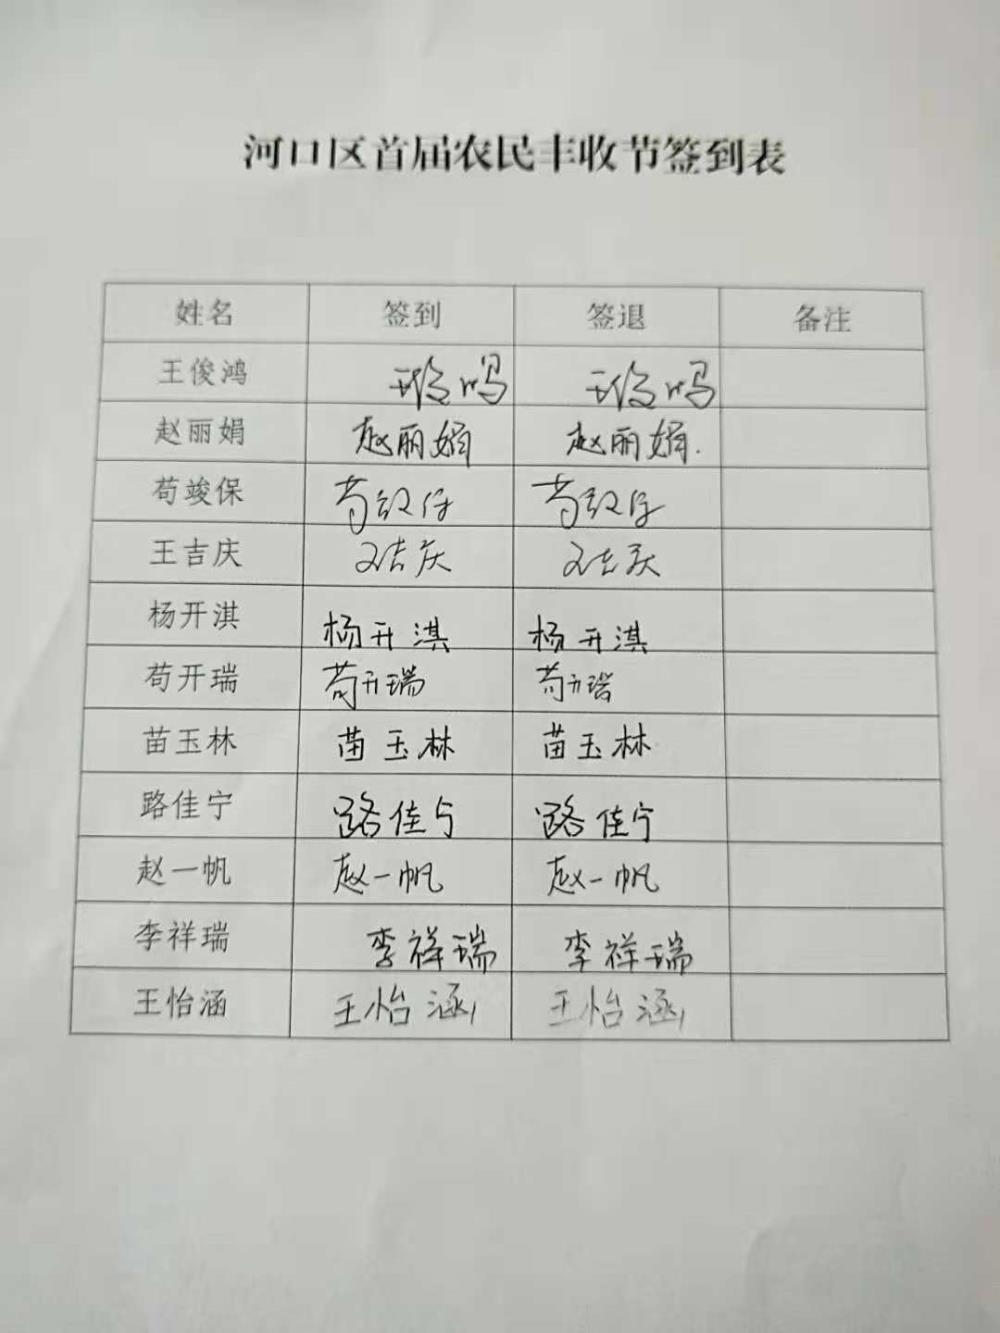 河口区首届农民丰收节签到表
姓名 签到 签退 备注
王俊鸿 王俊鸿 王俊鸿
赵丽娟 赵丽娟 赵丽娟.
苟竣保 苟竣保 苟竣保
王吉庆 王吉庆 王吉庆
杨开淇 杨开淇 杨开淇
苟开瑞 苟开瑞 苟开瑞
苗玉林 苗玉林 苗玉林
路佳宁 路佳宁 路佳宁
赵一帆 赵一帆 赵一帆
李祥瑞 李祥瑞 李祥瑞
王怡涵 王怡涵 王怡涵